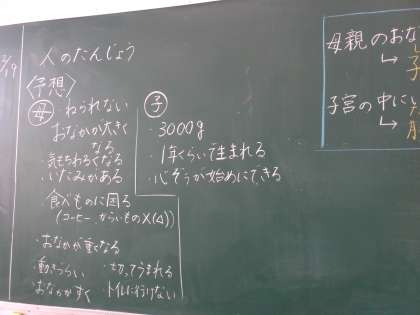 2/19
人のたんじょう
〈予想〉
母
ねられない
おなかが大きく
なる
・気もちわるくなる
・いたみがある
食べものに困る
(コーヒー、からいもの×(△))
・おなかが重くなる
動きづらい
・おなかがすく
・切ってうまれる
・トイレに行けない
子
・3000g
・1年くらいで生まれる
・心ぞうが始めにできる
母親のおな
↳子
子宮の中に
↳